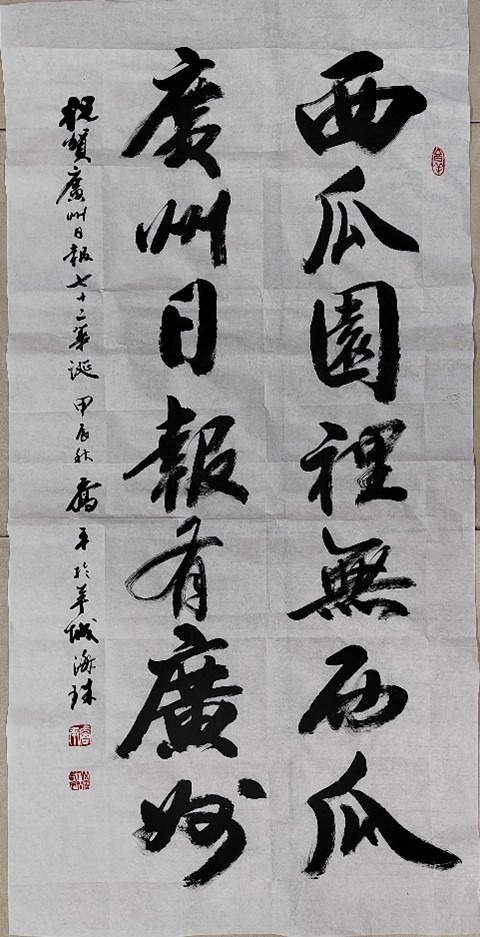 西瓜園裡無西瓜
廣州日報有廣州
祝賀廣州日報七十二華誕 甲辰秋 喬平於羊城海珠